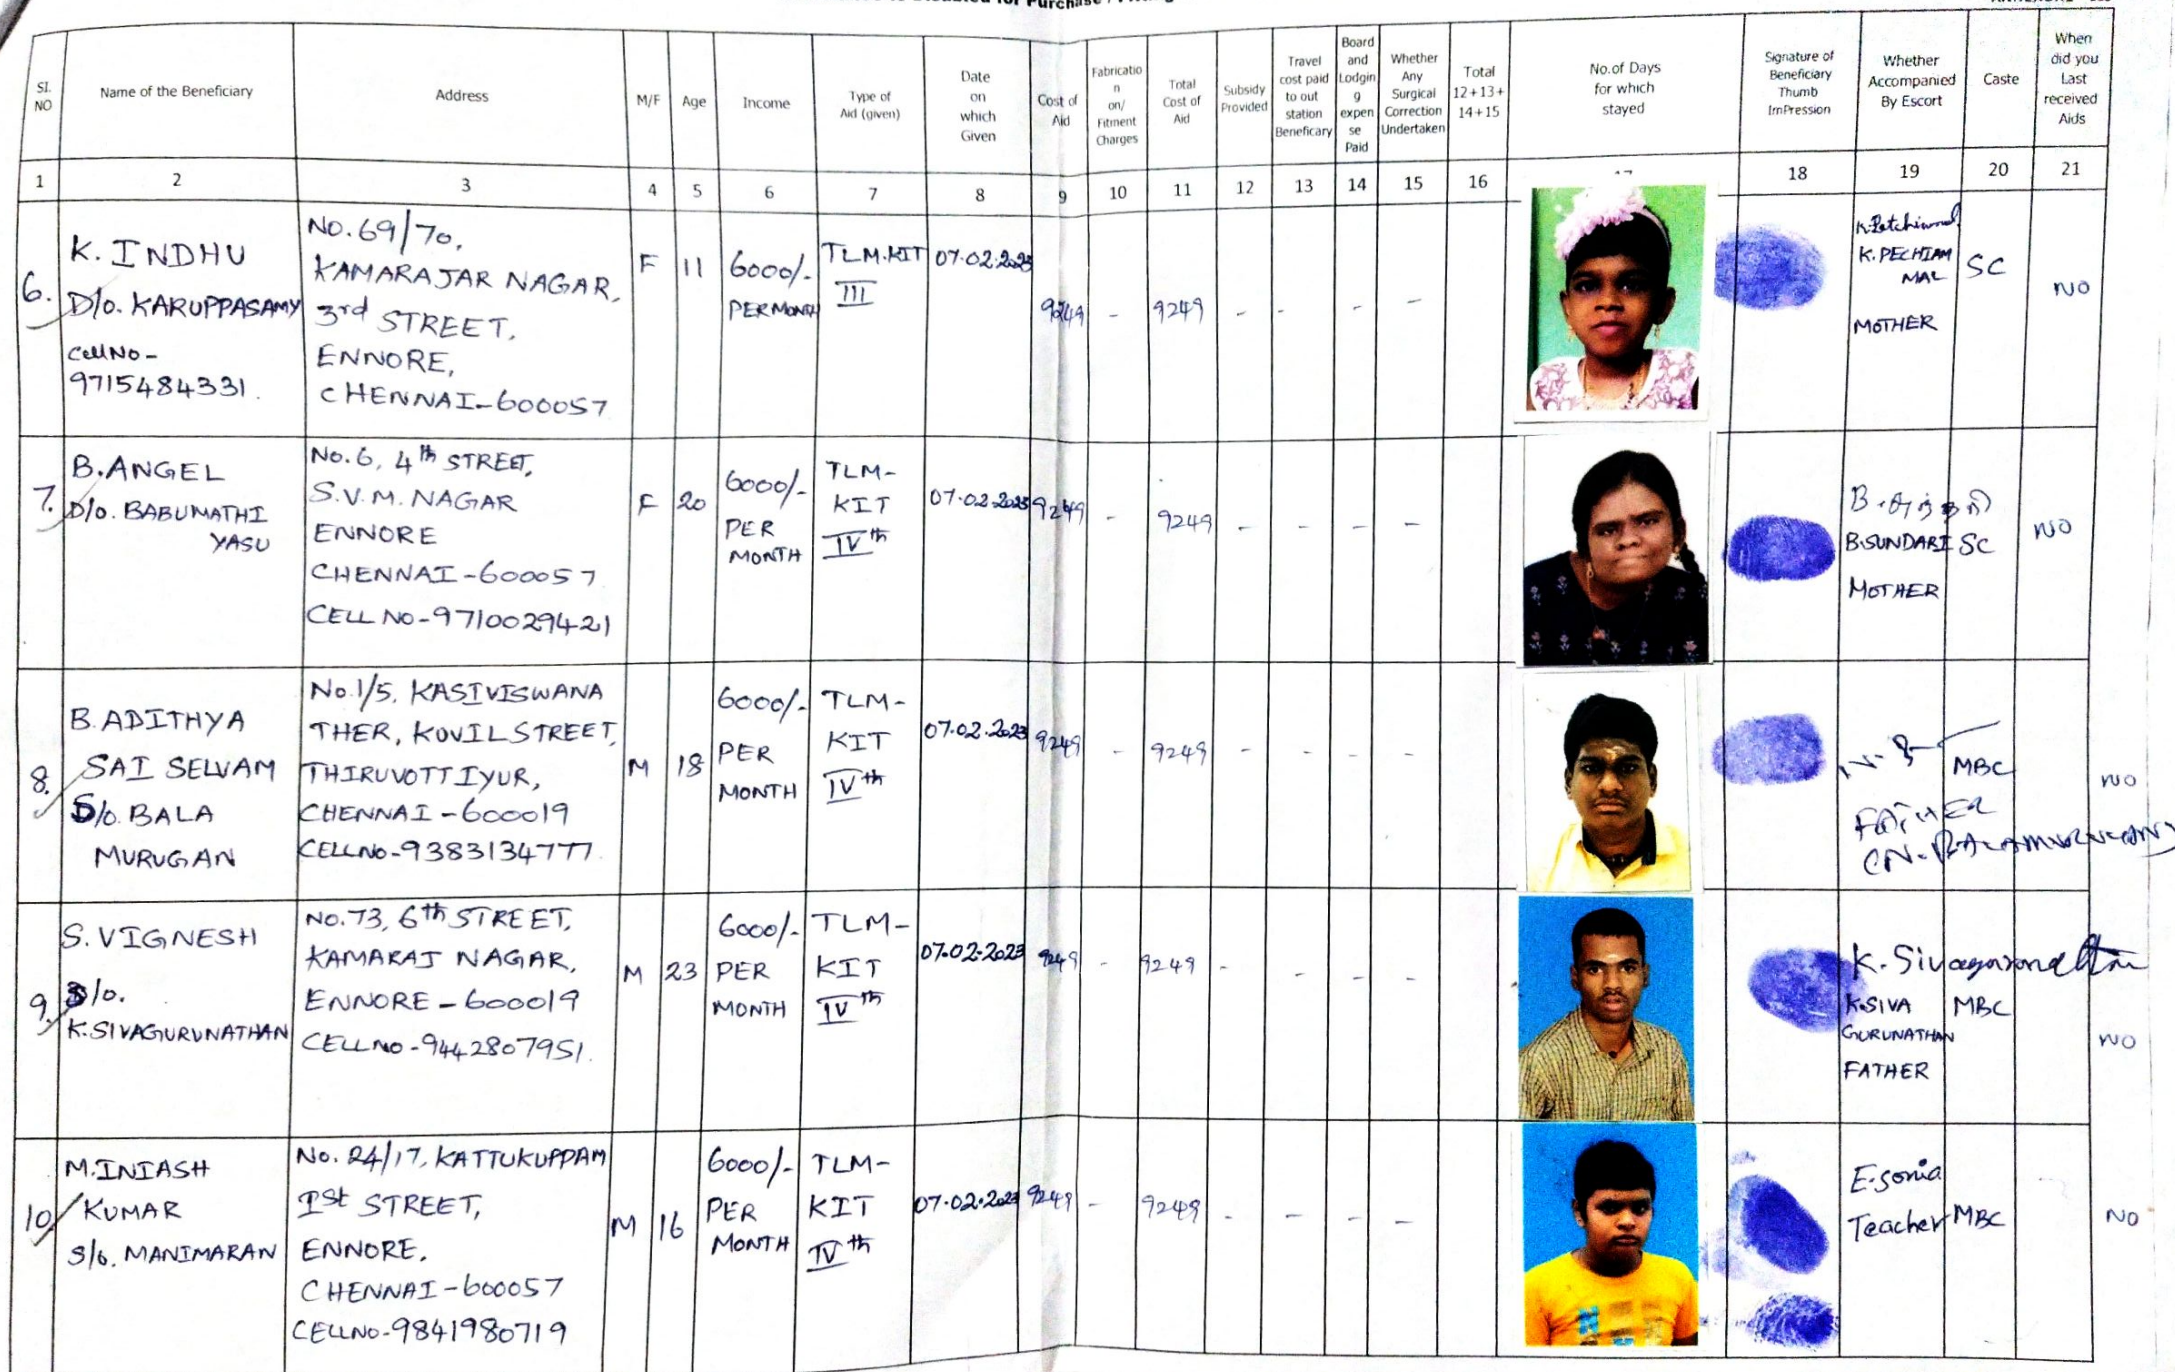 to Disabled for Purchase /
SI. NO
Name of the Beneficiary
Address
M/F
Age
Income
Type of
Aid (given)
Date
on
which
Given
Cost of
Aid
Fabricatio
n
on/
Fitment
Charges
Total
Cost of
Aid
Subsidy
Provided
Travel
cost paid
to out
station
Beneficary
Board
and
Lodgin
g
expen
se
Paid
Whether
Any
Surgical
Correction
Undertaken
Total
12+13+
14+15
No.of Days
for which
stayed
Signature of
Beneficiary
Thumb
ImPression
Whether
Accompanied
By Escort
Caste
When
did you
Last
received
Aids
1 2 3 4 5 6 7 8 9 10 11 12 13 14 15 16 18 19 20 21
6.
K. INDHU
D/o. KARUPPASAMY
Cell No -
9715484331.
No. 69/70,
KAMARAJAR NAGAR,
3rd STREET,
ENNORE,
CHENNAI-600057
F
11
6000/-
PER MONTH
TLM.KIT
III
07.02.2023
9249
-
9249
-
-
-
-
K. PECHIAM
MAL
MOTHER
SC
NO
7.
B. ANGEL
D/o. BABUMATHI
YASU
No. 6, 4th STREET,
S.V.M. NAGAR
ENNORE
CHENNAI -600057
CELL NO-9710029421
F
20
6000/-
PER
MONTH
TLM-
KIT
IVth
07.02.2023
9249
-
9249
-
-
-
-
B.SUNDARI
MOTHER
SC
NO
8.
B. ADITHYA
SAI SELVAM
S/o. BALA
MURUGAN
No.1/5, KASIVISWANA
THER, KOVIL STREET,
THIRUVOTTIYUR,
CHENNAI -600019
CELLNO-9383134777.
M
18
6000/-
PER
MONTH
TLM-
KIT
IVth
07.02.2023
9249
-
9249
-
-
-
-
FATHER
MBC
NO
9.
S. VIGNESH
S/o.
K. SIVAGURUNATHAN
No. 73, 6th STREET,
KAMARAJ NAGAR,
ENNORE - 600019
CELLNO -9442807951.
M
23
6000/-
PER
MONTH
TLM-
KIT
IVth
07.02.2023
9249
-
9249
-
-
-
-
K.SIVA
GURUNATHAN
FATHER
MBC
NO
10
M.INIASH
KUMAR
S/o. MANIMARAN
No. 24/17, KATTUKUPPAM
Ist STREET,
ENNORE,
CHENNAI-600057
CELLNO-9841980719
M
16
6000/-
PER
MONTH
TLM-
KIT
IVth
07.02.2023
9249
-
9249
-
-
-
-
E. Sonia
Teacher
MBC
NO